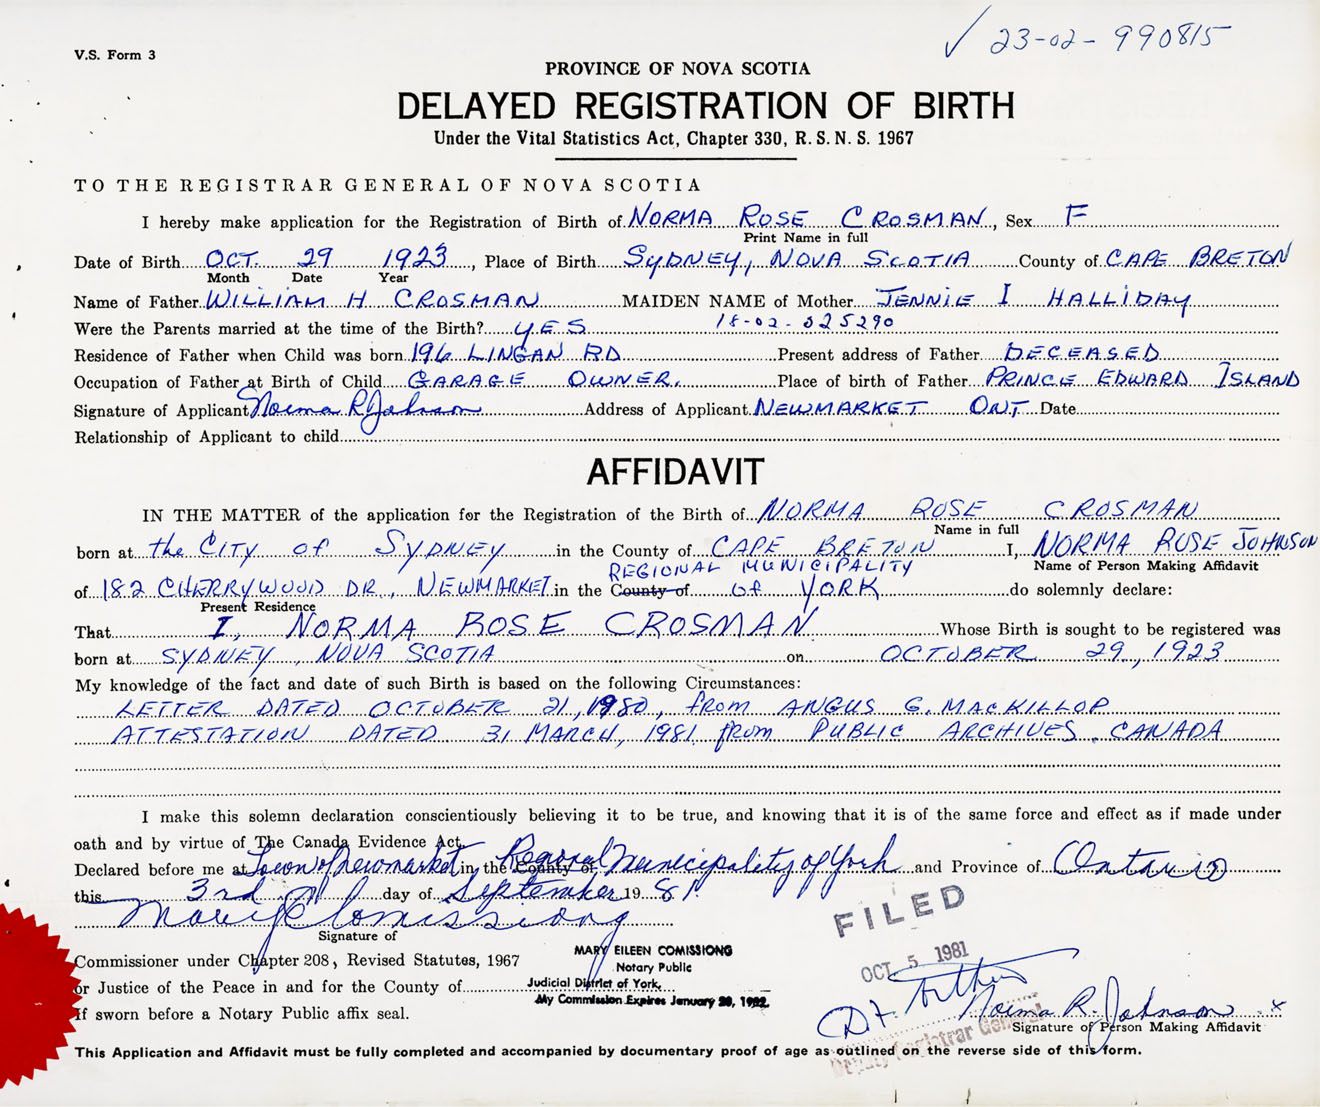 ✓ 23-02-990815
V.S. Form 3
PROVINCE OF NOVA SCOTIA
DELAYED REGISTRATION OF BIRTH
Under the Vital Statistics Act, Chapter 330, R. S. N. S. 1967
TO THE REGISTRAR GENERAL OF NOVA SCOTIA
I hereby make application for the Registration of Birth of NORMA ROSE CROSMAN, Sex F
Print Name in full
Date of Birth OCT. 29 1923, Place of Birth SYDNEY, NOVA SCOTIA County of CAPE BRETON
Month Date Year
Name of Father WILLIAM H CROSMAN MAIDEN NAME of Mother JENNIE I HALLIDAY
Were the Parents married at the time of the Birth? YES 18-02-325290
Residence of Father when Child was born 196 LINGAN RD Present address of Father DECEASED
Occupation of Father at Birth of Child GARAGE OWNER. Place of birth of Father PRINCE EDWARD ISLAND
Signature of Applicant Norma R Johnson Address of Applicant NEWMARKET ONT Date
Relationship of Applicant to child
AFFIDAVIT
IN THE MATTER of the application for the Registration of the Birth of NORMA ROSE CROSMAN
Name in full
born at the CITY of SYDNEY in the County of CAPE BRETON I, NORMA ROSE JOHNSON
REGIONAL MUNICIPALITY Name of Person Making Affidavit
of 182 CHERRYWOOD DR., NEWMARKET in the County of of YORK do solemnly declare:
Present Residence
That I, NORMA ROSE CROSMAN Whose Birth is sought to be registered was
born at SYDNEY, NOVA SCOTIA on OCTOBER 29, 1923
My knowledge of the fact and date of such Birth is based on the following Circumstances:
LETTER DATED OCTOBER 21, 1980, from ANGUS G. MACKILLOP
ATTESTATION DATED 31 MARCH, 1981 from PUBLIC ARCHIVES. CANADA
I make this solemn declaration conscientiously believing it to be true, and knowing that it is of the same force and effect as if made under
oath and by virtue of The Canada Evidence Act.
Declared before me at Town of Newmarket in the County of Regional Municipality of York and Province of Ontario
this 3rd day of September 1981.
Mary E Comissiong
Signature of
FILED
Commissioner under Chapter 208, Revised Statutes, 1967
MARY EILEEN COMISSIONG
Notary Public
OCT 5 1981
or Justice of the Peace in and for the County of Judicial District of York,
My Commission Expires January 20, 1982.
If sworn before a Notary Public affix seal.
Norma R. Johnson x
Deputy Registrar General
Signature of Person Making Affidavit
This Application and Affidavit must be fully completed and accompanied by documentary proof of age as outlined on the reverse side of this form.